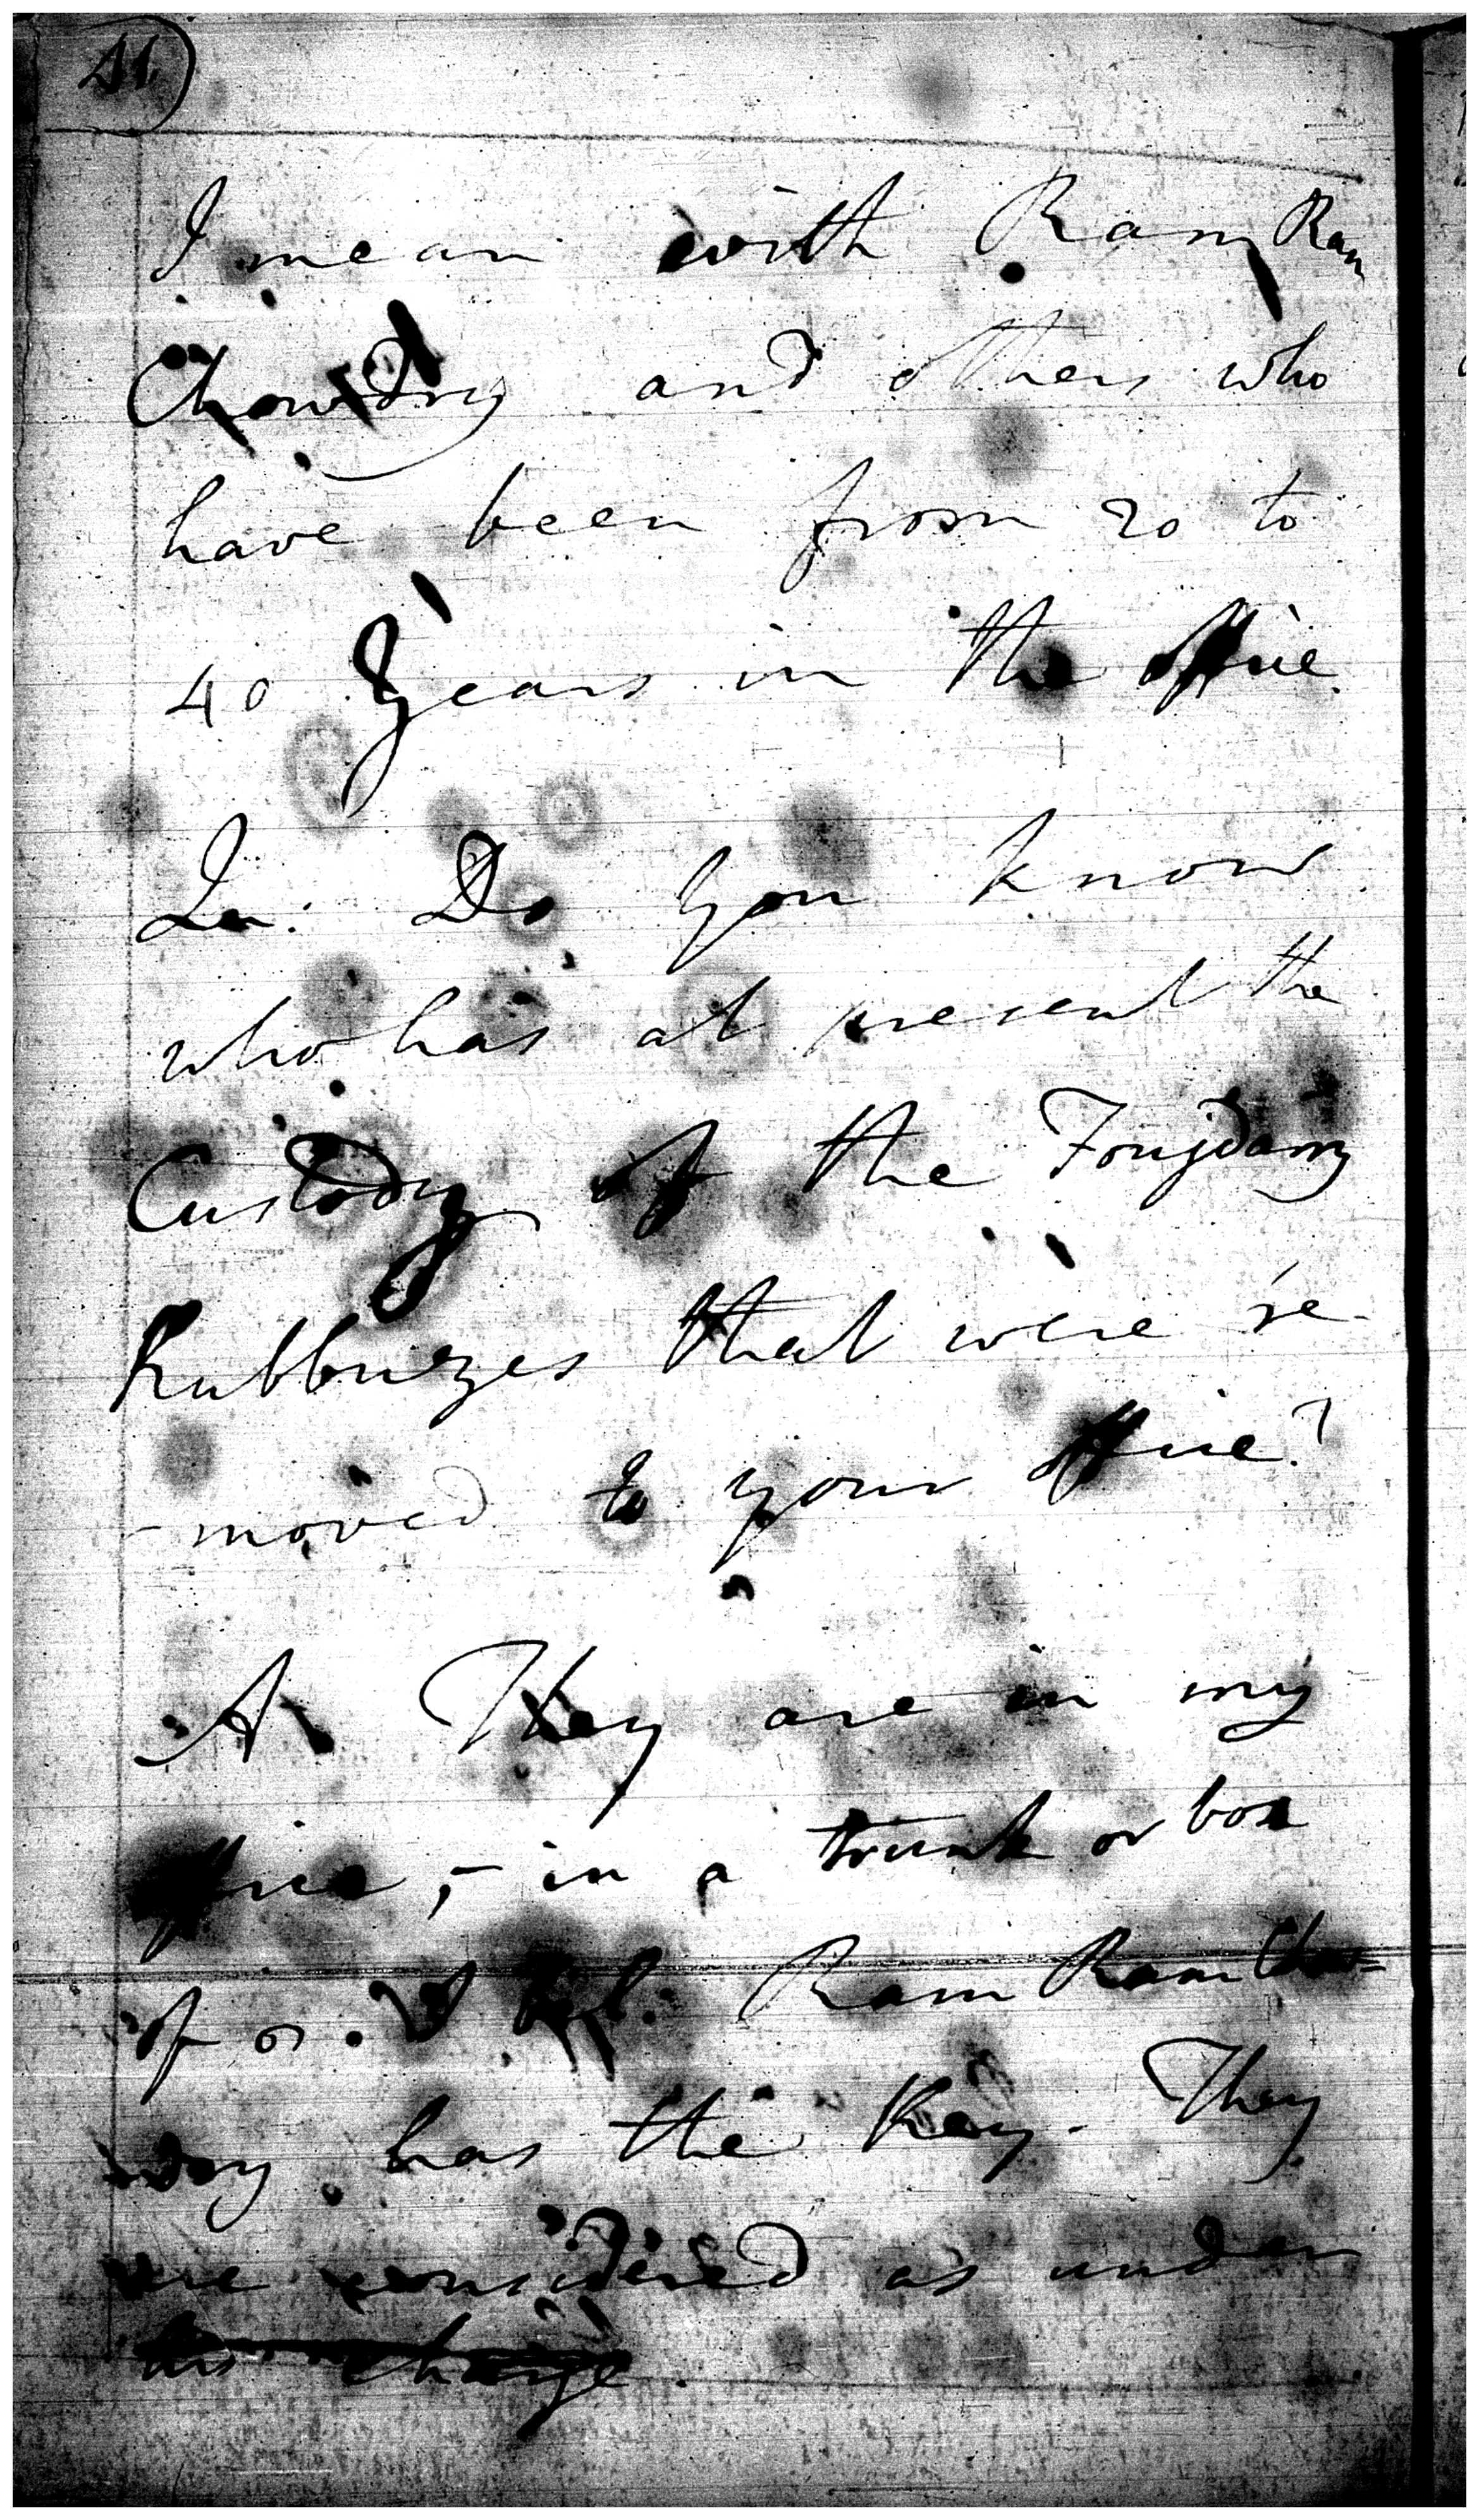 41
I mean with Ram Ram
Chowdry and others who
have been from 20 to
40 Years in the office.
Qu: Do you know
who has at present the
Custody of the Foujdarry
Rubbuezes that were re-
-moved to your office?
A They are in my
office, - in a trunk or box
of Ram Ram Chow=
dry has the Key. They
are considered as under
his charge.